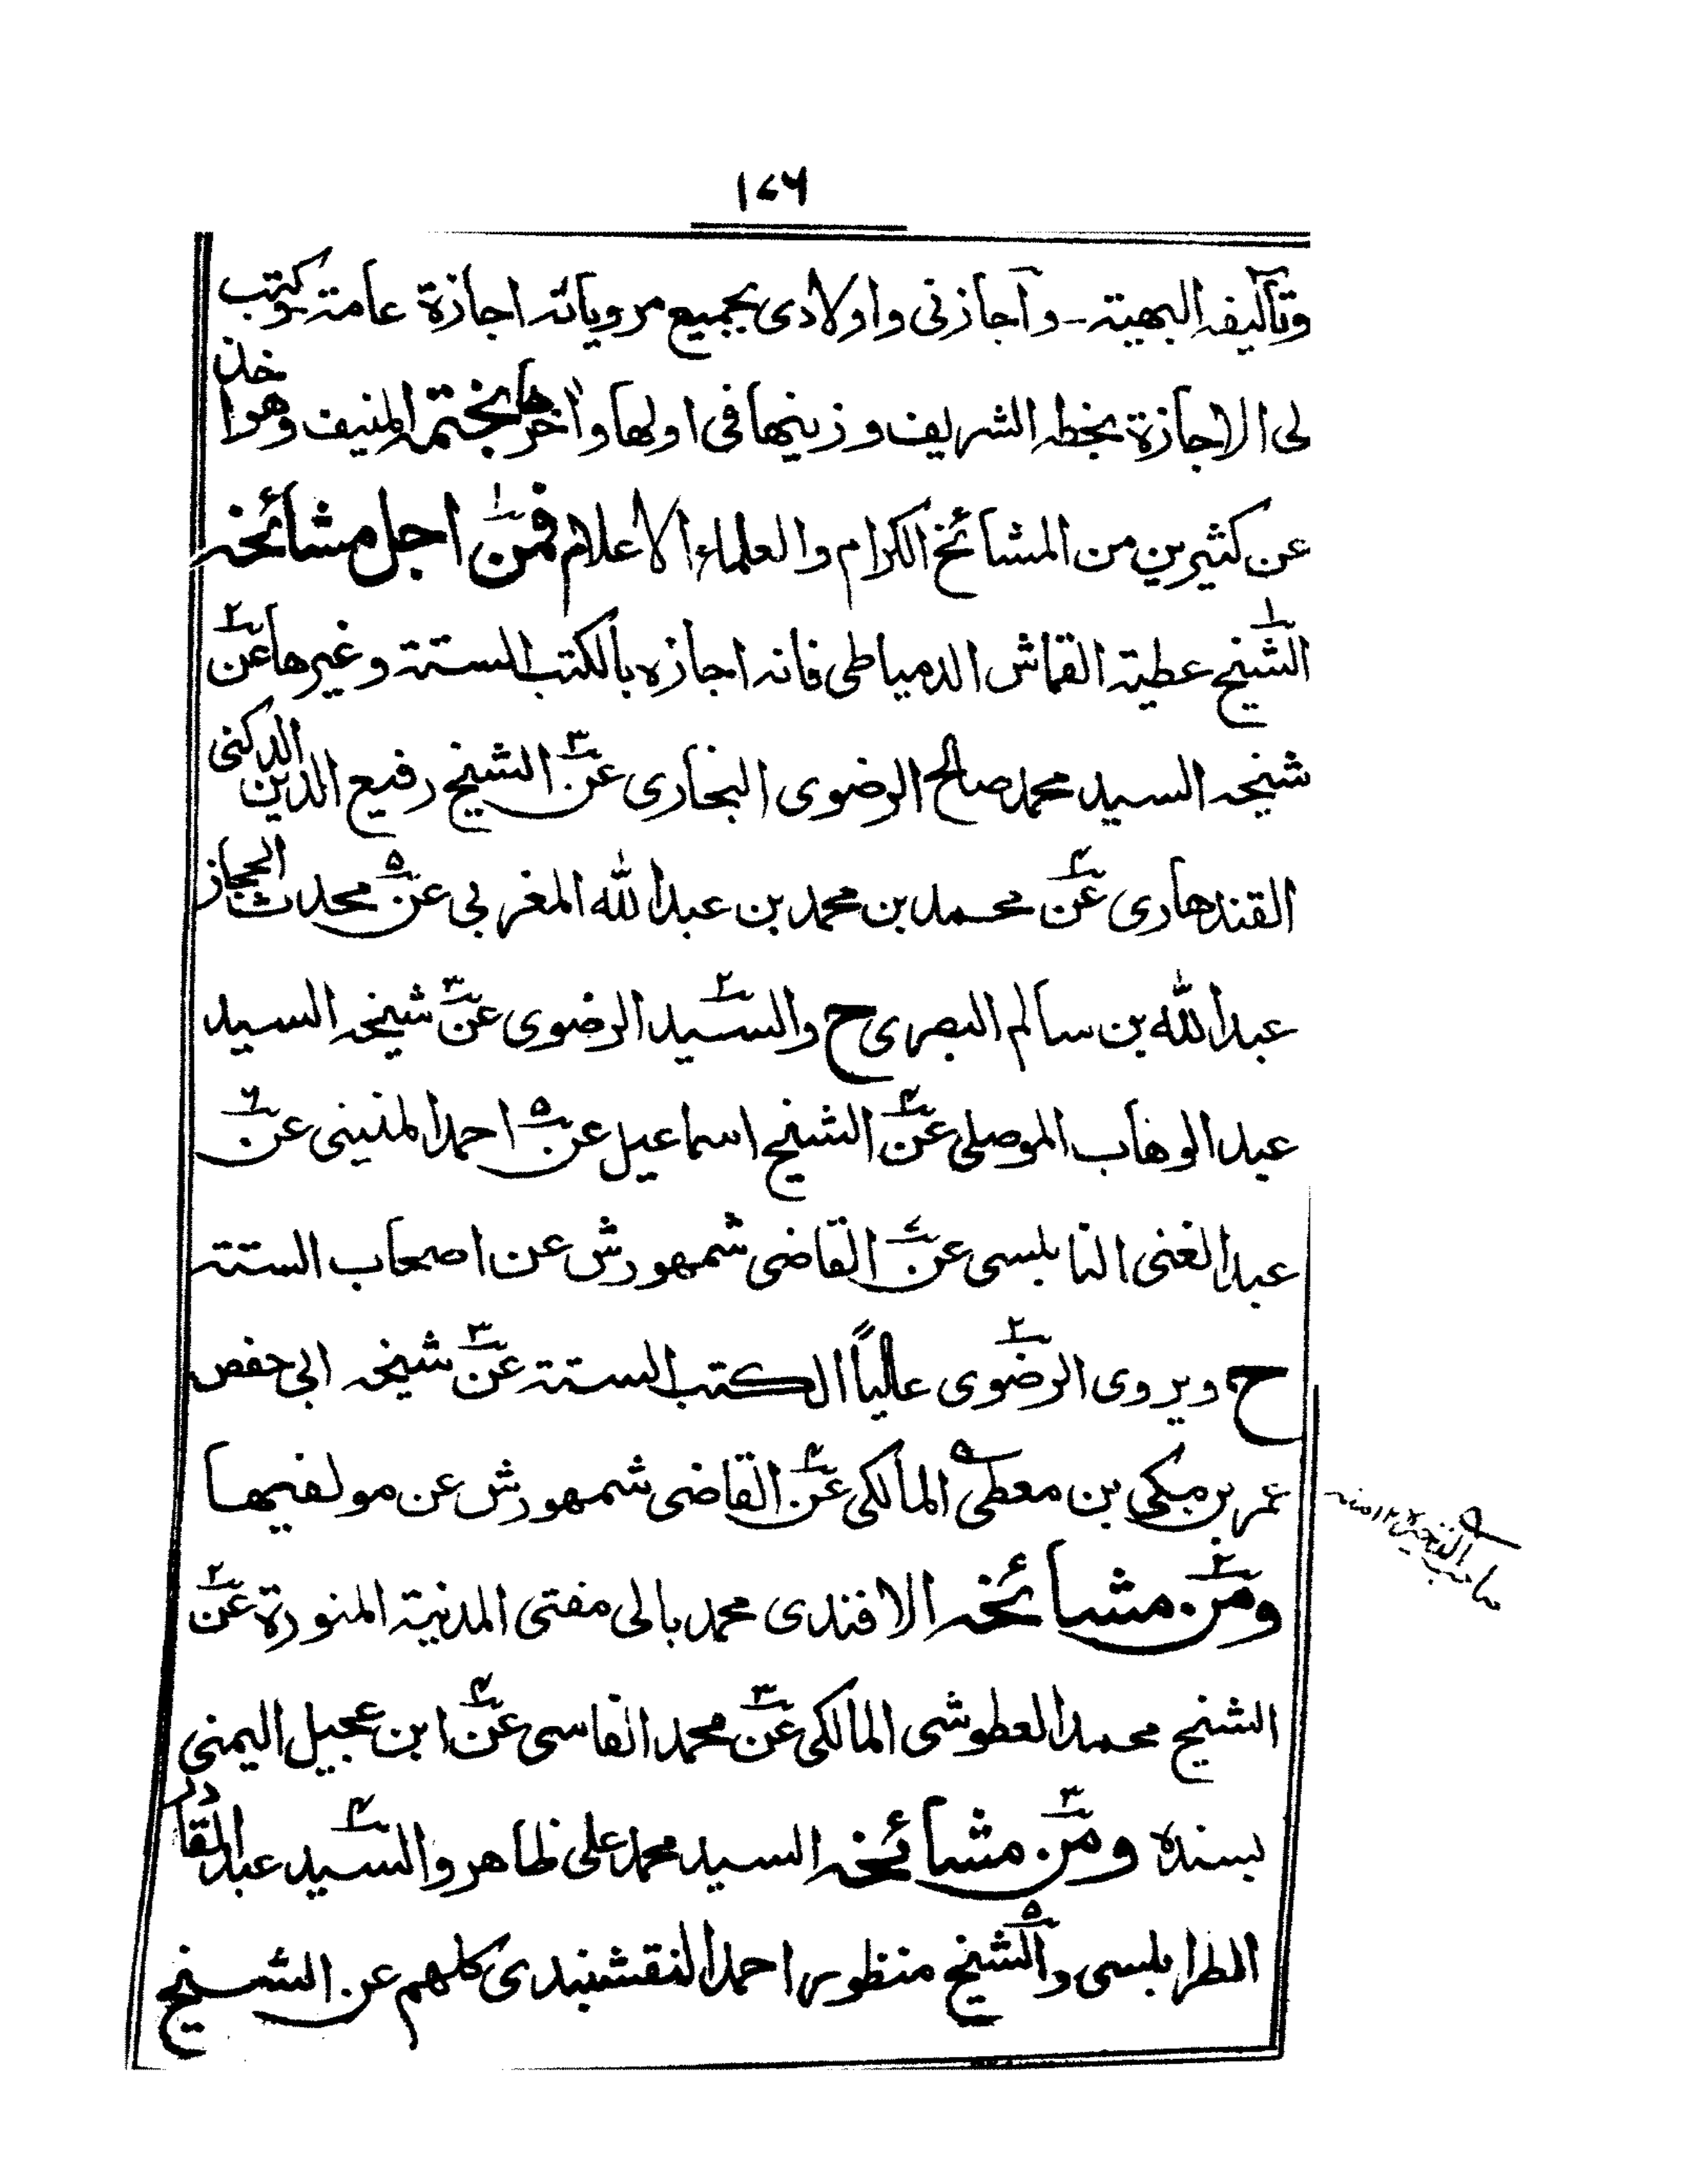 ١٧٦
وتآليفه البهية ـ وآجازنى واولادى بجميع مروياته اجازة عامة وكتب
لى الاجازة بخطه الشريف وزينها فى اولها واٰخرها بختمه المنيف وهو اخذ
عن كثيرين من المشائخ الكرام والعلماء الاعلام فمن١ اجل مشائخه
الشيخ١ عطية القماش الدمياطى فانه اجازه بالكتب الستة وغيرها عن٢
شيخه السيد محمد صالح الرضوى البخارى عن٣ الشيخ رفيع الدين الدكنى
القندهارى عن٤ محمد بن محمد بن عبد الله المغربى عن٥ محدث الحجاز
عبد الله بن سالم البصرى ح والسيد٢ الرضوى عن٣ شيخه السيد
عبد الوهاب الموصلى عن٤ الشيخ اسماعيل عن٥ احمد المنينى عن٦
عبد الغنى النابلسى عن٧ القاضى شمهورش عن اصحاب الستة
ح ويروى الرضوى٢ عالياً الكتب الستة عن٣ شيخه ابى حفص
عمر بن مكى بن معطى المالكى عن٤ القاضى شمهورش عن مولفيها
ومن٢ مشائخه الافندى محمد بالى مفتى المدنية المنورة عن٢
الشيخ محمد العطوشى المالكى عن٣ محمد الفاسى عن٤ ابن عجيل اليمنى
بسنده ومن٣ مشائخه السيد محمد على ظاهر والسيد٤ عبد القادر
الطرابلسى والشيخ٥ منظور احمد النقشبندى كلهم عن الشيخ